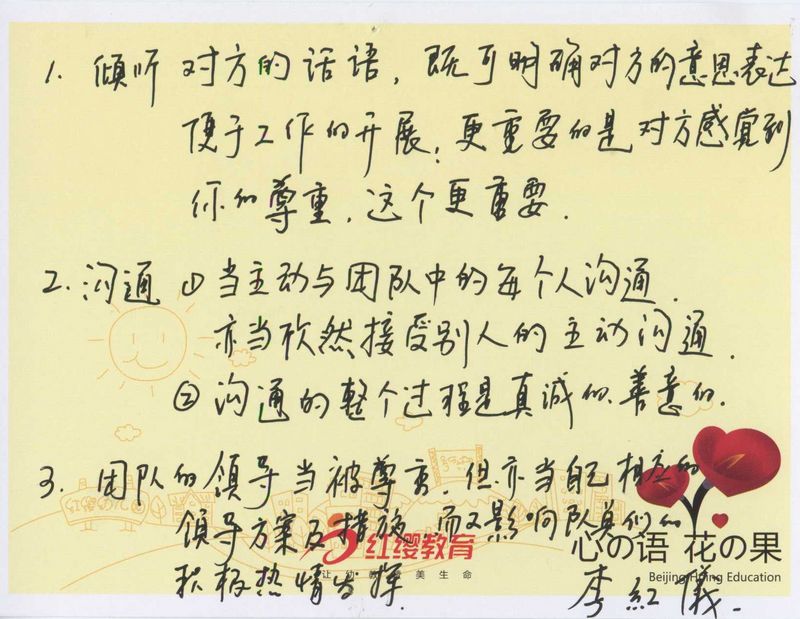 1. 倾听 对方的话语，既可明确对方的意思表达
便于工作的开展；更重要的是对方感觉到
你的尊重，这个更重要．
2. 沟通 ① 当主动与团队中的每个人沟通．
亦当欣然接受别人的主动沟通．
② 沟通的整个过程是真诚的、善意的．
3. 团队的领导当被尊重．但亦当自己相应的
领导方案及措施，而又影响队员们的
积极热情发挥．
红缨幼儿园
红缨教育
让幼教更美生命
心の语 花の果
Beijing Hying Education
李红仪．